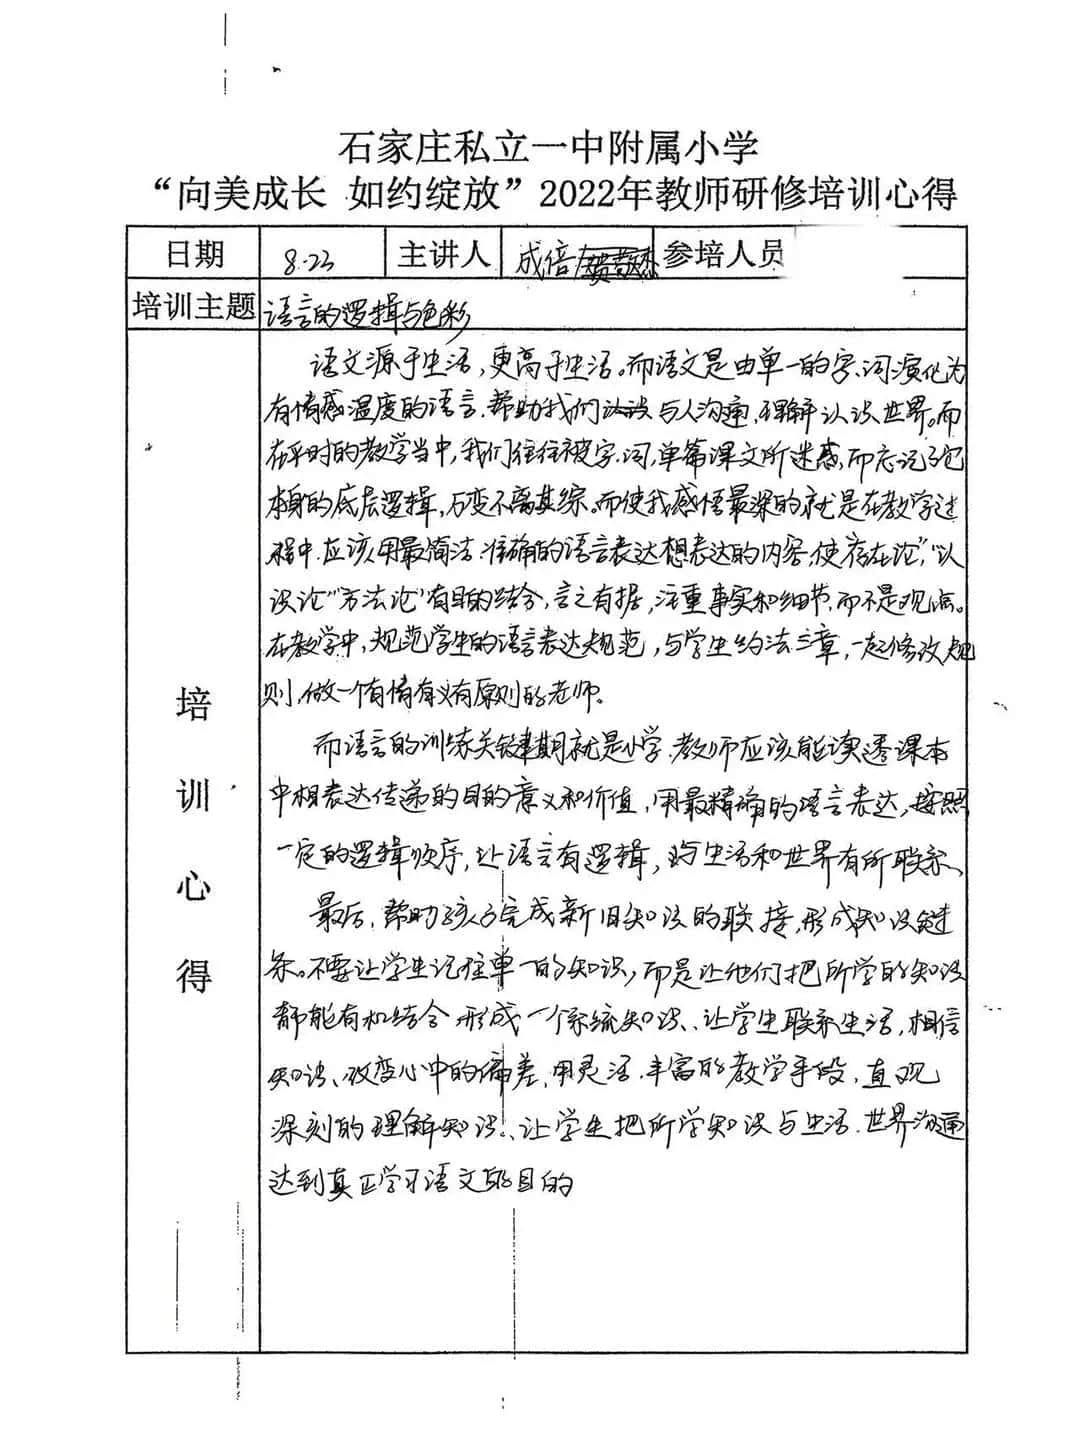 石家庄私立一中附属小学
“向美成长 如约绽放”2022年教师研修培训心得
日期 8.23 主讲人 成倍 参培人员
培训主题 语言的逻辑与色彩
培训心得
语文源于生活,更高于生活。而语文是由单一的字、词演化为
有情感温度的语言,帮助我们 与人沟通,理解认识世界。而
在平时的教学当中,我们往往被字、词,单篇课文所迷惑,而忘记了它
本身的底层逻辑,万变不离其综。而使我感悟最深的就是在教学过
程中.应该用最简洁.准确的语言表达想表达的内容,使“存在论”,“认
识论”“方法论”有目的结合,言之有据,注重事实和细节,而不是观点。
在教学中,规范学生的语言表达规范,与学生约法三章,一起修改规
则,做一个有情有义有原则的老师。
而语言的训练关键期就是小学.教师应该能读透课本
中想表达传递的目的意义和价值,用最精确的语言表达,按照
一定的逻辑顺序,让语言有逻辑,与生活和世界有所联系、
最后,帮助孩子完成新旧知识的联接,形成知识链
条。不要让学生记住单一的知识,而是让他们把所学的知识
都能有机结合 形成一个系统知识、让学生联系生活,相信
知识、改变心中的偏差,用灵活.丰富的教学手段,直观
深刻的理解知识、让学生把所学知识与生活.世界沟通
达到真正学习语文的目的